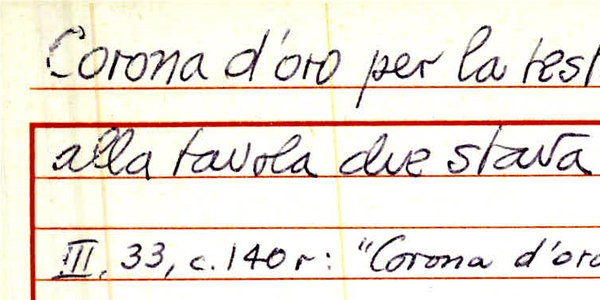 Corona d'oro per la test
alla tavola che stava
III, 33, c. 140 r: "Corona d'oro